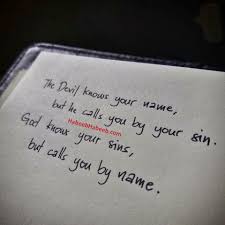 The Devil knows your name,
but he calls you by your sin.
HabeebHabeeb.com
God knows your sins,
but calls you by name.